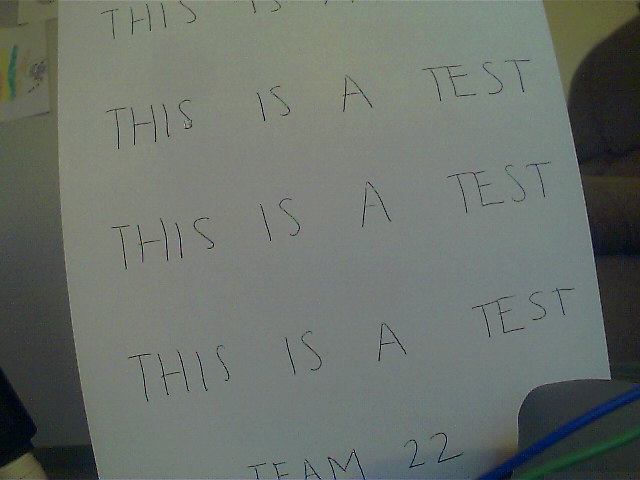 THIS IS A
THIS IS A TEST
THIS IS A TEST
THIS IS A TEST
TEAM 22